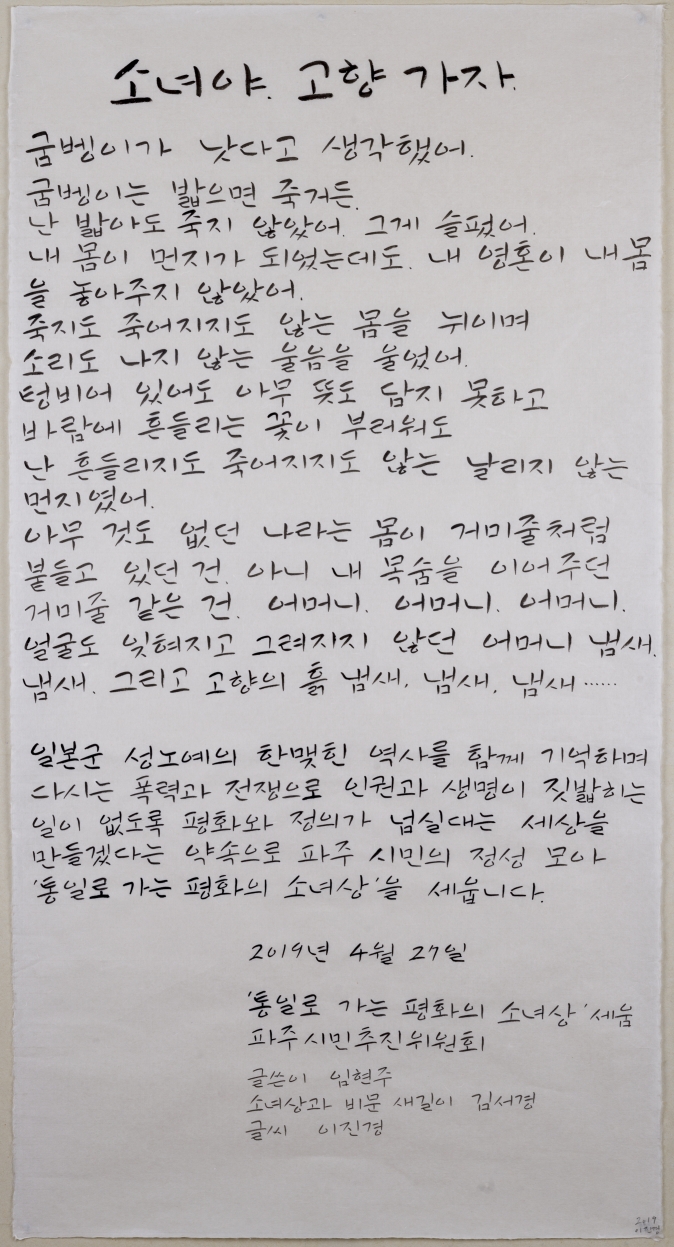 소녀야. 고향 가자.
굼벵이가 낫다고 생각했어.
굼벵이는 밟으면 죽거든.
난 밟아도 죽지 않았어. 그게 슬펐어.
내 몸이 먼지가 되었는데도. 내 영혼이 내 몸
을 놓아주지 않았어.
죽지도 죽어지지도 않는 몸을 뉘이며
소리도 나지 않는 울음을 울었어.
텅비어 있어도 아무 뜻도 담지 못하고
바람에 흔들리는 꽃이 부러워도
난 흔들리지도 죽어지지도 않는 날리지 않는
먼지였어.
아무 것도 없던 나라는 몸이 거미줄처럼
붙들고 있던 건. 아니 내 목숨을 이어주던
거미줄 같은 건. 어머니. 어머니. 어머니.
얼굴도 잊혀지고 그려지지 않던 어머니 냄새.
냄새. 그리고 고향의 흙 냄새. 냄새. 냄새……
일본군 성노예의 한맺힌 역사를 함께 기억하며
다시는 폭력과 전쟁으로 인권과 생명이 짓밟히는
일이 없도록 평화와 정의가 넘실대는 세상을
만들겠다는 약속으로 파주 시민의 정성 모아
'통일로 가는 평화의 소녀상'을 세웁니다.
2019년 4월 27일
'통일로 가는 평화의 소녀상' 세움
파주시민추진위원회
글쓴이 임현주
소녀상과 비문 새길이 김서경
글씨 이진경
2019
이진경